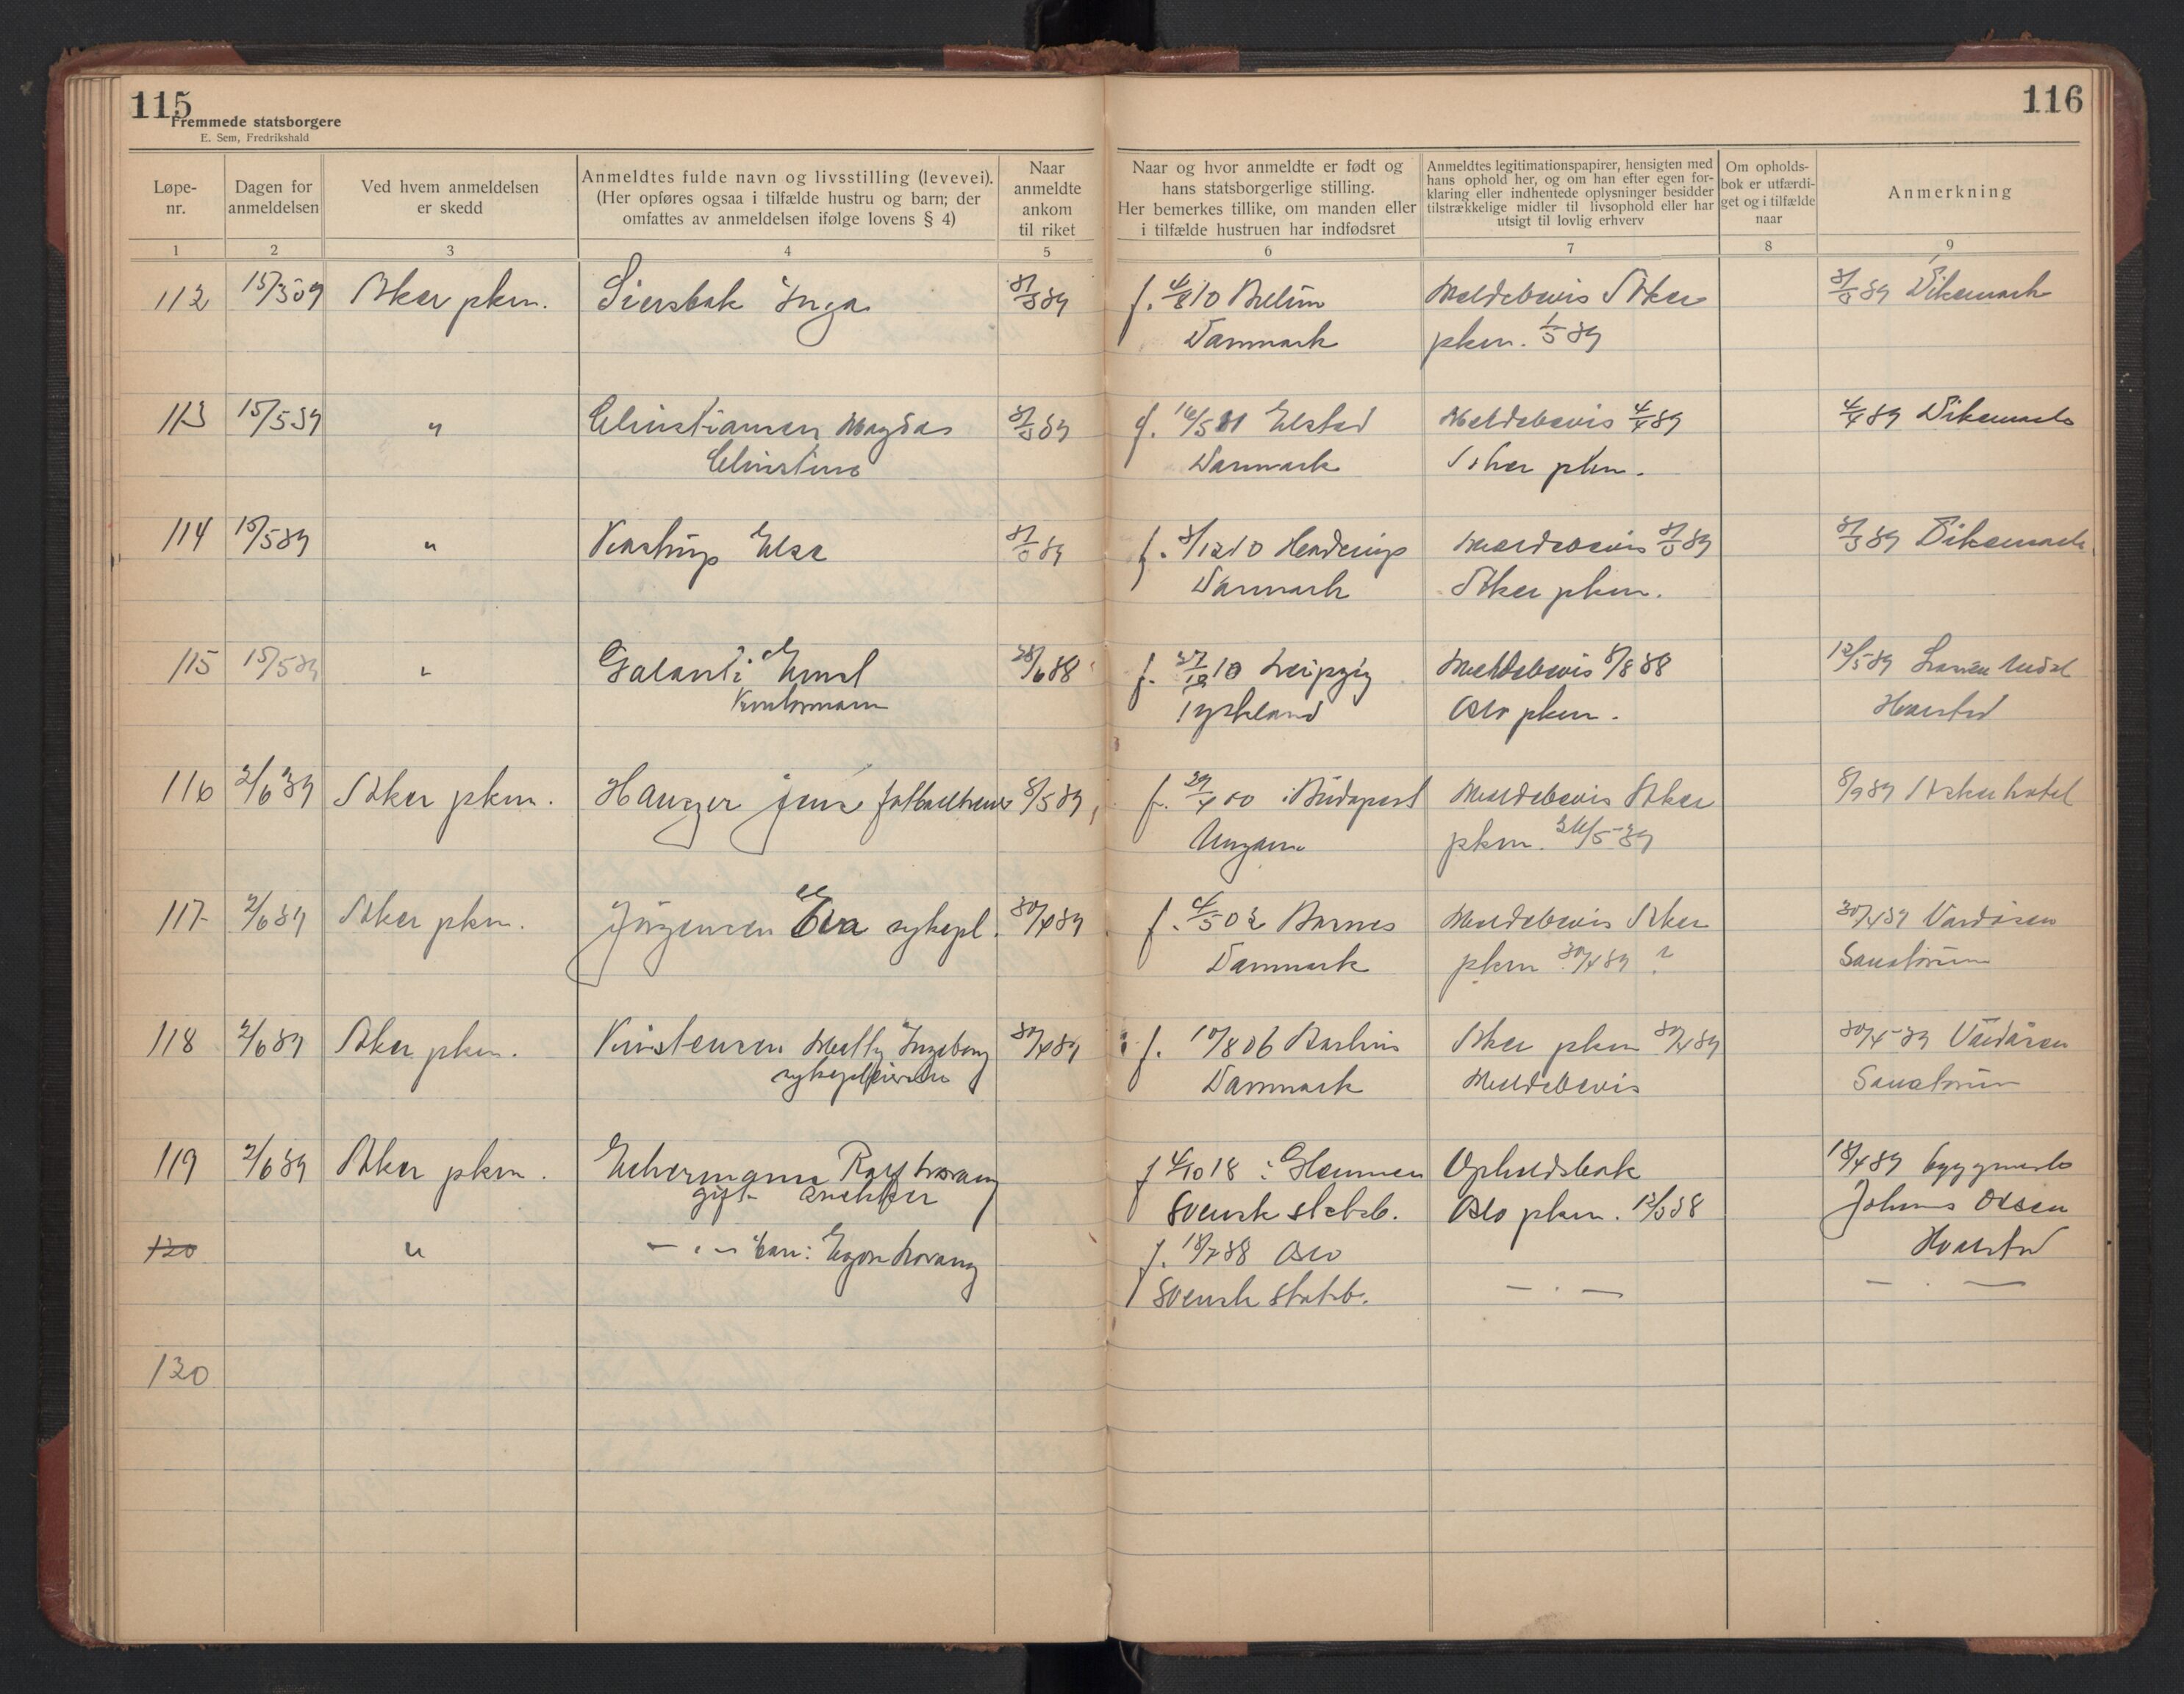 115
Fremmede statsborgere
E. Sem, Fredrikshald
116
Løpe-
nr.
Dagen for
anmeldelsen
Ved hvem anmeldelsen
er skedd
Anmeldtes fulde navn og livsstilling (levevei).
(Her opføres ogsaa i tilfælde hustru og barn; der
omfattes av anmeldelsen ifølge lovens § 4)
Naar
anmeldte
ankom
til riket
Naar og hvor anmeldte er født og
hans statsborgerlige stilling.
Her bemerkes tillike, om manden eller
i tilfælde hustruen har indfødsret
Anmeldtes legitimationspapirer, hensigten med
hans ophold her, og om han efter egen for-
klaring eller indhentede oplysninger besidder
tilstrækkelige midler til livsophold eller har
utsigt til lovlig erhverv
Om opholds-
bok er utfærdi-
get og i tilfælde
naar
Anmerkning
1 2 3 4 5 6 7 8 9
112 15/5 39 Aker pkm. Inga f. 10 Meldebevis Aker Dikemark
Danmark pkm. 1/5 39
113 15/5 39 " Christiansen Magda f. 16/5 11 Elsted Meldebevis 4/4 39 4/4 39 Dikemark
Christine Danmark Aker pkm.
114 15/5 39 " Elsa f. 3/12 10 Meldebevis Dikemark
Danmark Aker pkm.
115 15/5 39 " Galanti Ernst 28/6 38 f. 27/12 10 Leipzig Meldebevis 5/8 38 12/5 39
Kontormann Tyskland Oslo pkm. Hvalstad
116 2/6 39 Aker pkm. Hauszer 8/5 39 f. 29/4 00 i Budapest Meldebevis Aker Asker hotel
Ungarn pkm. 5-39
117 2/6 39 Aker pkm. Jörgensen Eva sykepl. 30/4 39 f. 4/5 02 Meldebevis Aker 30/4 39 Vardåsen
Danmark pkm 30/4 39 ? Sanatorium
118 2/6 39 Aker pkm. Kristensen Ingeborg 30/4 39 f. 10/8 06 Aker pkm 30/4 39 30/4-39 Vardåsen
sykepleierske Danmark Meldebevis Sanatorium
119 2/6 39 Aker pkm. Rolf f 4/10 18 i Glemmen Opholdsbok 18/4 39 byggmester
gift snekker svensk statsb. Oslo pkm. 38 Johans Olsen
120 " — " — barn: Egon f. 18/7 38 Oslo Hvalstad
svensk statsb. — " — — " —
120